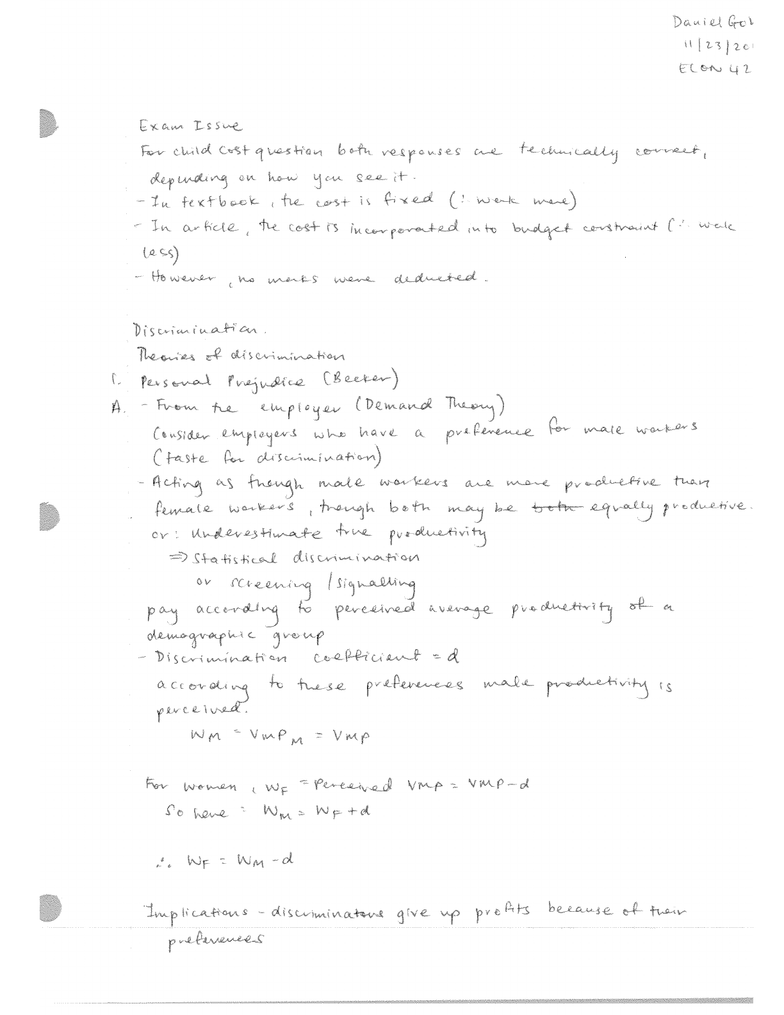 Daniel Go
11/23/20
ECON 42
Exam Issue
For child cost question both responses are technically correct,
depending on how you see it.
- In textbook, the cost is fixed (∴ work more)
- In article, the cost is incorporated into budget constraint (∴ work
less)
- However, no marks were deducted.
Discrimination.
Theories of discrimination
1. Personal Prejudice (Becker)
A. - From the employer (Demand Theory)
Consider employers who have a preference for male workers
(taste for discrimination)
- Acting as though male workers are more productive than
female workers, though both may be both equally productive.
or: Underestimate true productivity
⇒ Statistical discrimination
or screening / signalling
pay according to perceived average productivity of a
demographic group
- Discrimination coefficient = d
according to these preferences male productivity is
perceived.
WM = VMPM = VMP
For women, WF = Perceived VMP = VMP-d
So here: WM = WF + d
∴ WF = WM - d
Implications - discriminators give up profits because of their
preferences